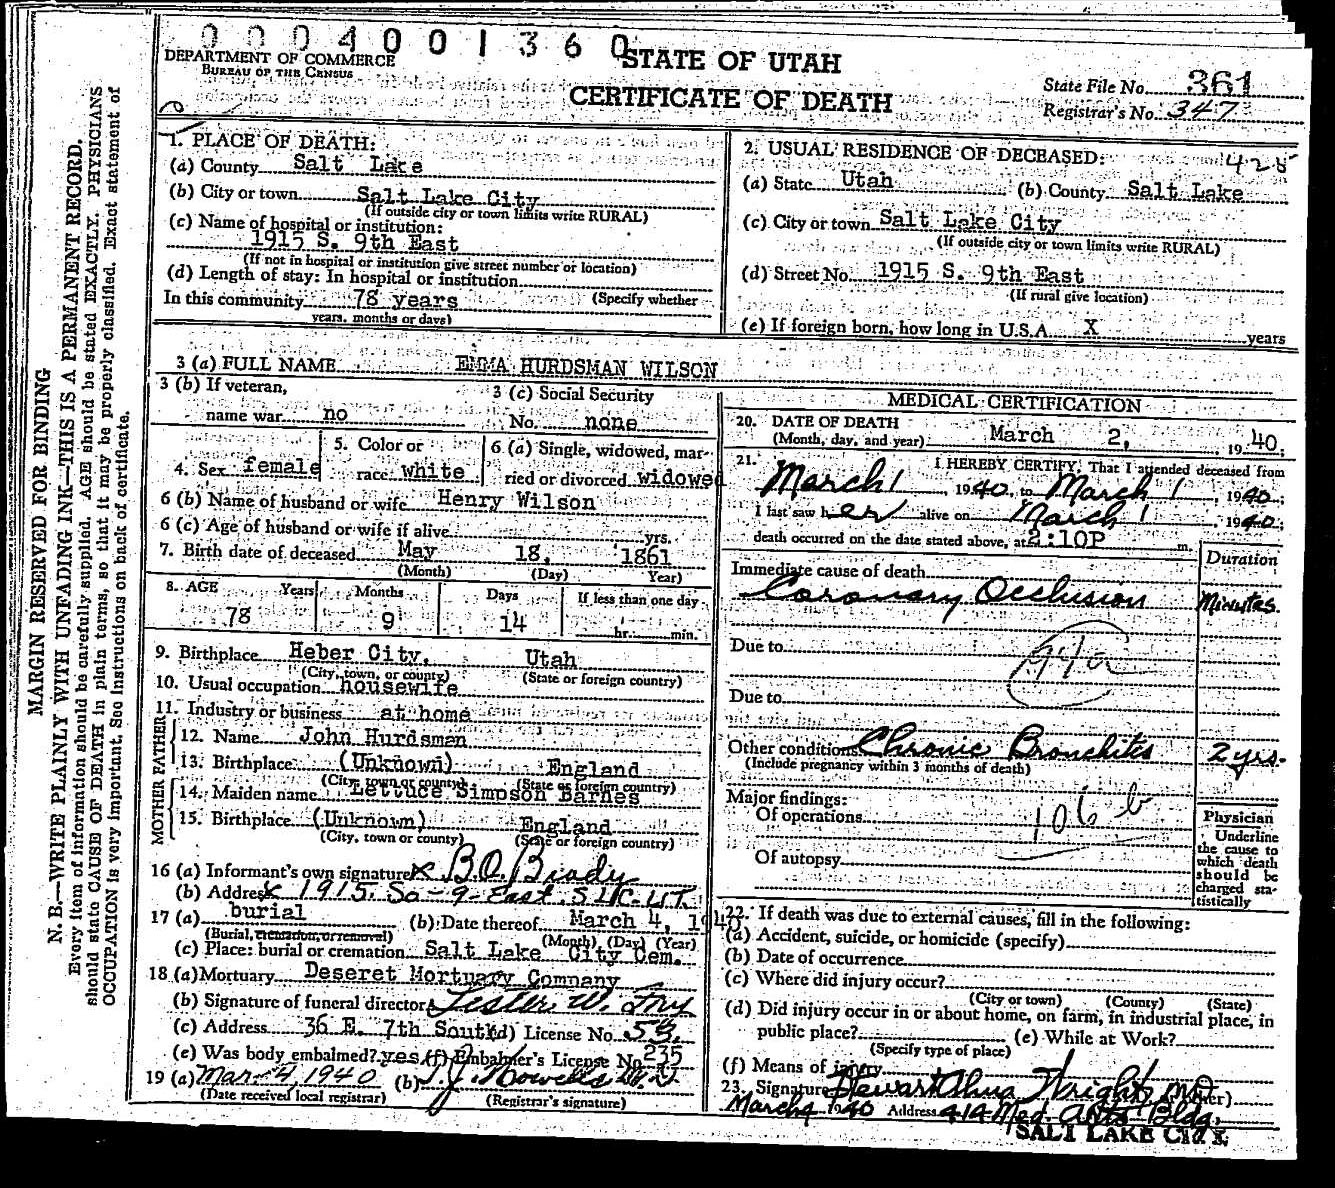 0004001360
DEPARTMENT OF COMMERCE
BUREAU OF THE CENSUS
STATE OF UTAH
CERTIFICATE OF DEATH
State File No. 361
Registrar's No. 347
MARGIN RESERVED FOR BINDING
N. B.—WRITE PLAINLY WITH UNFADING INK—THIS IS A PERMANENT RECORD.
Every item of information should be carefully supplied. AGE should be stated EXACTLY. PHYSICIANS
should state CAUSE OF DEATH in plain terms, so that it may be properly classified. Exact statement of
OCCUPATION is very important. See Instructions on back of certificate.
1. PLACE OF DEATH:
(a) County Salt Lake
(b) City or town Salt Lake City
(If outside city or town limits write RURAL)
(c) Name of hospital or institution:
1915 S. 9th East
(If not in hospital or institution give street number or location)
(d) Length of stay: In hospital or institution
In this community 78 years (Specify whether
years, months or days)
2. USUAL RESIDENCE OF DECEASED: 428
(a) State Utah (b) County Salt Lake
(c) City or town Salt Lake City
(If outside city or town limits write RURAL)
(d) Street No. 1915 S. 9th East
(If rural give location)
(e) If foreign born, how long in U.S.A. X years
3 (a) FULL NAME EMMA HURDSMAN WILSON
3 (b) If veteran,
name war no
3 (c) Social Security
No. none
4. Sex female
5. Color or
race white
6 (a) Single, widowed, mar-
ried or divorced widowed
6 (b) Name of husband or wife Henry Wilson
6 (c) Age of husband or wife if alive yrs.
7. Birth date of deceased May 18, 1861
(Month) (Day) Year)
8. AGE Years Months Days If less than one day
78 9 14 hr. min.
9. Birthplace Heber City, Utah
(City, town, or county) (State or foreign country)
10. Usual occupation housewife
11. Industry or business at home
FATHER
12. Name John Hurdsman
13. Birthplace (Unknown) England
(City, town or county) (State or foreign country)
MOTHER
14. Maiden name Lettuce Simpson Barnes
15. Birthplace (Unknown) England
(City, town or county) (State or foreign country)
16 (a) Informant's own signature x B.O. Brady
(b) Address x 1915. So-9-East. S.L.C. UT.
17 (a) burial (b) Date thereof March 4, 1940
(Burial, cremation, or removal) (Month) (Day) (Year)
(c) Place: burial or cremation Salt Lake City Cem.
18 (a) Mortuary Deseret Mortuary Company
(b) Signature of funeral director Lester W.
(c) Address 36 E. 7th South (d) License No. 53.
(e) Was body embalmed? yes (f) Embalmer's License No. 235
19 (a) Mar. 4, 1940 (b) T.J. Howells M.D.
(Date received local registrar) (Registrar's signature)
MEDICAL CERTIFICATION
20. DATE OF DEATH
(Month, day, and year) March 2, 1940;
21. I HEREBY CERTIFY, That I attended deceased from
March 1, 1940, to March 1, 1940;
I last saw her alive on March 1, 1940;
death occurred on the date stated above, at 2:10P m.
Duration
Immediate cause of death
Coronary Occlusion Minutes.
Due to 94a
Due to
Other conditions Chronic Bronchitis 2 yrs.
(Include pregnancy within 3 months of death)
Major findings:
Of operations 106 b
Of autopsy
Physician
Underline
the cause to
which death
should be
charged sta-
tistically
22. If death was due to external causes, fill in the following:
(a) Accident, suicide, or homicide (specify)
(b) Date of occurrence
(c) Where did injury occur?
(City or town) (County) (State)
(d) Did injury occur in or about home, on farm, in industrial place, in
public place? (e) While at Work?
(Specify type of place)
(f) Means of injury
23. Signature Stewart Alma Wright MD
March 4 1940 Address 414 Med. Arts Bldg.
SALT LAKE CITY.